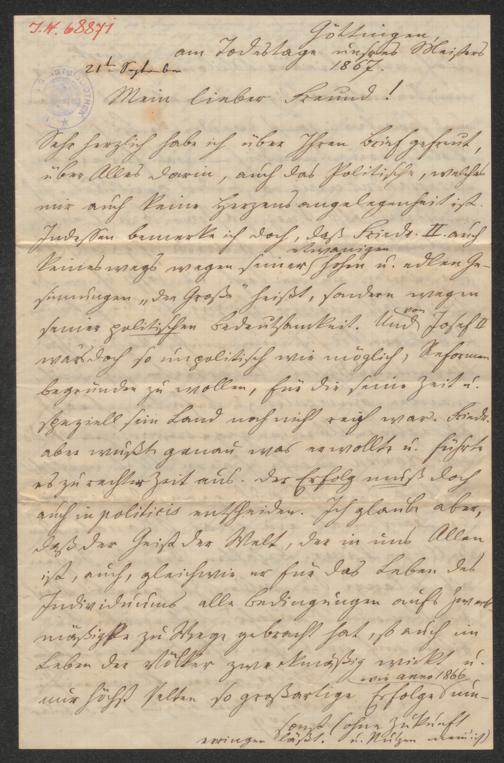 I.N. 68871
Göttingen,
am Todestage unsres Meisters
21t September 1867.
Mein lieber Freund!
Sehr herzlich habe ich über Ihren Brief gefreut,
über Alles darin, auch das Politische, welches
mir auch keine Herzensangelegenheit ist.
Indessen bemerke ich doch, daß Friedr. II. auch
keineswegs wegen seiner etwanigen hohen u. edlen Ge-
sinnungen „der Große" heißt, sondern wegen
seiner politischen Bedeutsamkeit. Und von Josef II
war's doch so unpolitisch wie möglich, Reformen
begründen zu wollen, für die seine Zeit u.
speziell sein Land noch nicht reif war. Friedr.
aber wußte genau was er wollte u. führte
es zu rechter Zeit aus. Der Erfolg muß doch
auch in politicis entscheiden. Ich glaube aber,
daß der Geist der Welt, der in uns Allen
ist, auch, gleichwie er für das Leben des
Individuums alle Bedingungen aufs zweck-
mäßigste zu Wege gebracht hat, so auch im
Leben der Völker zweckmäßig wirkt u.
nur höchst selten so großartige Erfolge wie anno 1866
erringen läßt. ohne Zukunft
u. Nutzen